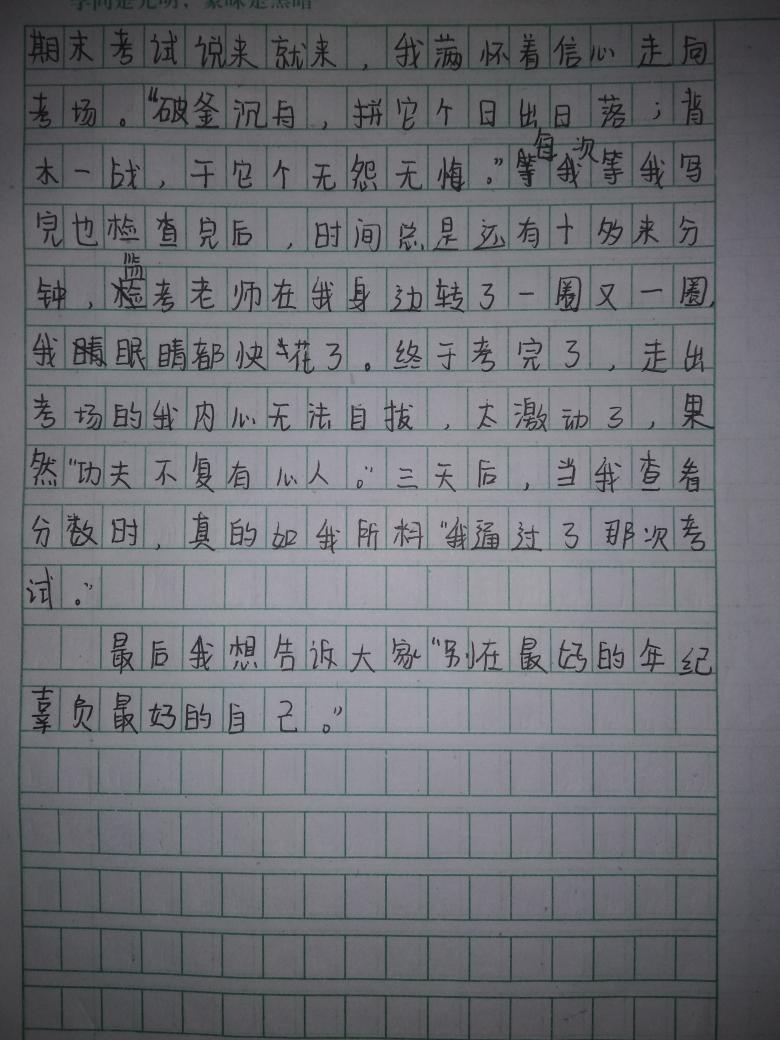 学问是光明，蒙昧是黑暗
期末考试说来就来，我满怀着信心走向
考场。“破釜沉舟，拼它个日出日落；背
水一战，干它个无怨无悔。”每次等我写
完也检查完后，时间总是还有十多来分
钟，监考老师在我身边转了一圈又一圈，
我眼睛都快花了。终于考完了，走出
考场的我内心无法自拔，太激动了，果
然“功夫不复有心人。”三天后，当我查看
分数时，真的如我所料“我通过了那次考
试。”
最后我想告诉大家“别在最好的年纪
辜负最好的自己。”